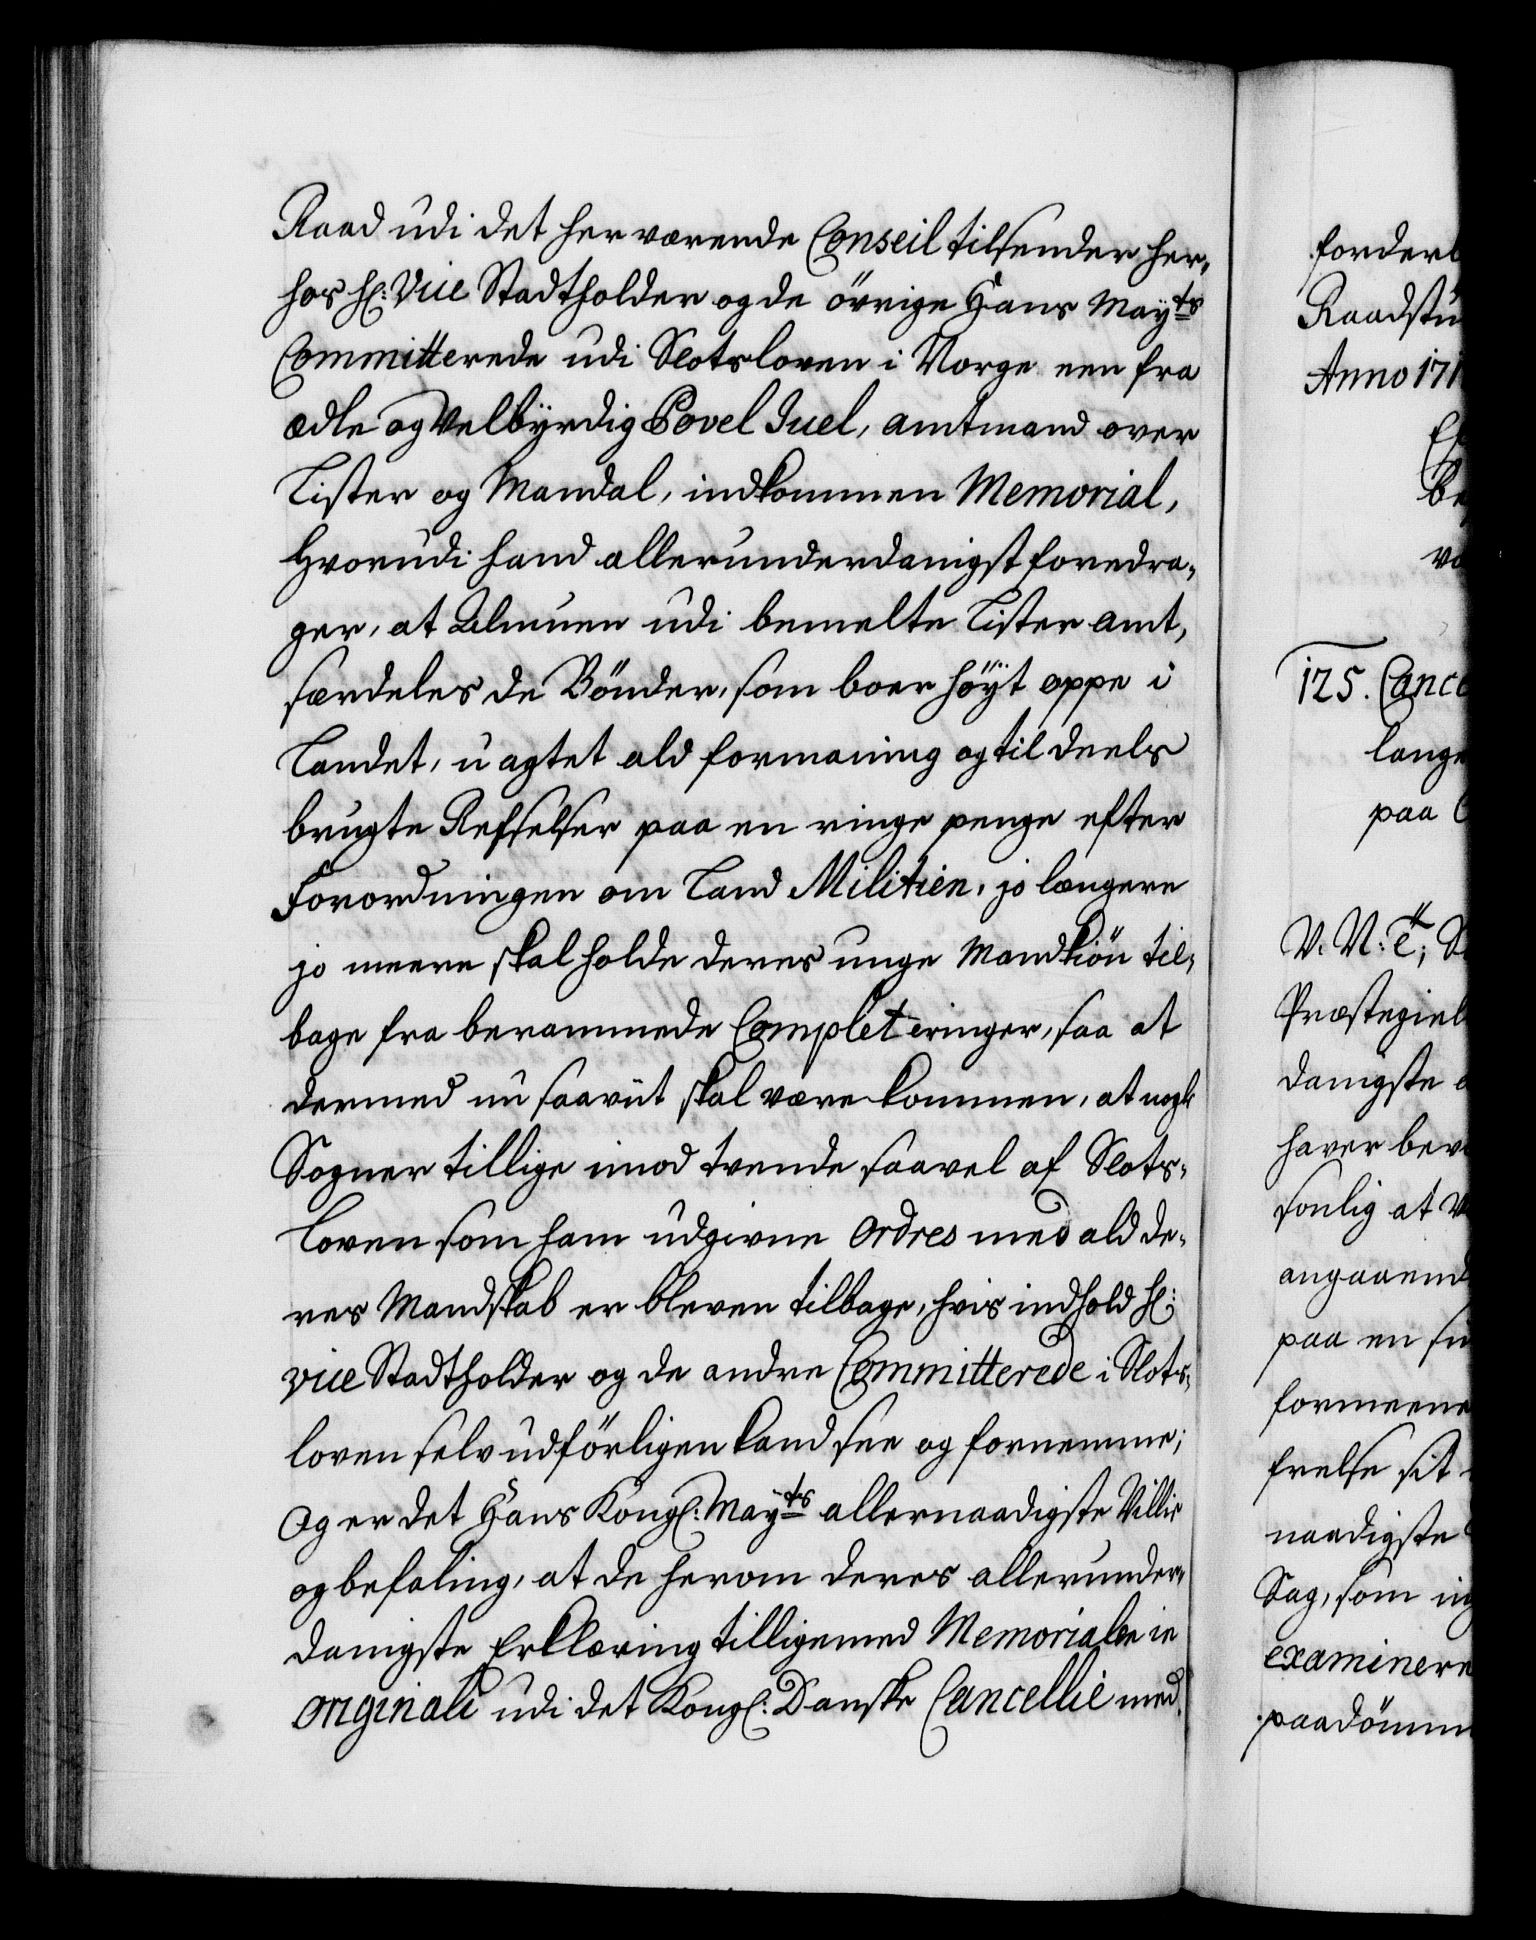 Raad udi det herværende Conseil tilsender her-
hos Hl: Vice Stadtholder og de övrige Hans Mayts
Committerede udi Slotsloven i Norge een fra
ædle og Velbyrdig Povel Juel, amtmand over
Lister og Mandal, indkommen Memorial,
Hvorudi hand allerunderdanigst foredra-
ger, at Almuen udi bemelte Lister amt,
særdeles de Bönder, som boer höyt oppe i
Landet, u agtet ald formaning og til deels
brugte Refselser paa en ringe penge efter
Forordningen om Land Militien, jo længere
jo meere skal holde deres unge Mandkiön til-
bage fra berammede Completeringer, saa at
dermed nu saaviit skal være kommen, at nogle
Sogner tillige imod tvende saavel af Slots-
Loven som ham udgivne Ordres med ald de-
res Mandskab er bleven tilbage, hvis indhold Hl:
Vice Stadtholder og de andre Committerede i Slots-
loven selv udförligen kand see og fornemme;
Og er det Hans Kongl: Mayts allernaadigste Villie
og befaling, at de herom deres allerunder-
danigste Erklæring tilligemed Memorialen in
originali udi det Kongl: Danske Cancellie med
forderl
Raadstu
Anno 171
be
125. Cance
lange
paa
V. N: E;
Præstegiel
danigste
haver beve
sonlig at
angaaend
paa en
formeene
frelse sit
naadigste
Sag, som
examinere
paadömm